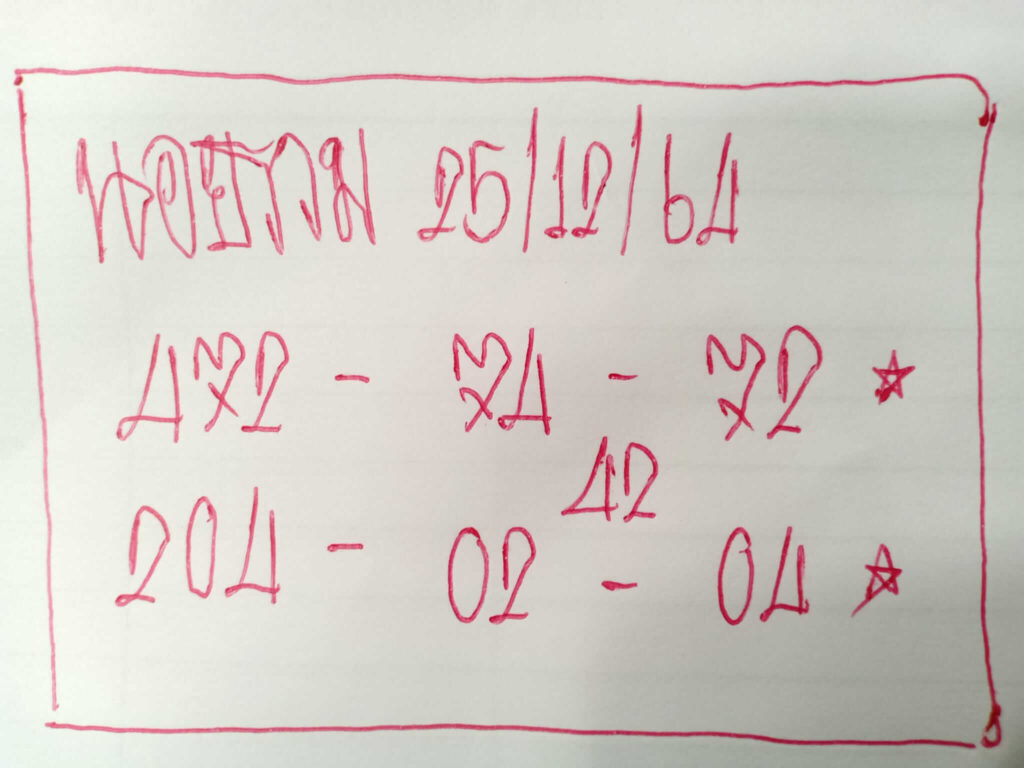 ฮานอยรวม 25/12/64
472 - 74 - 72 ☆
42
204 - 02 - 04 ☆